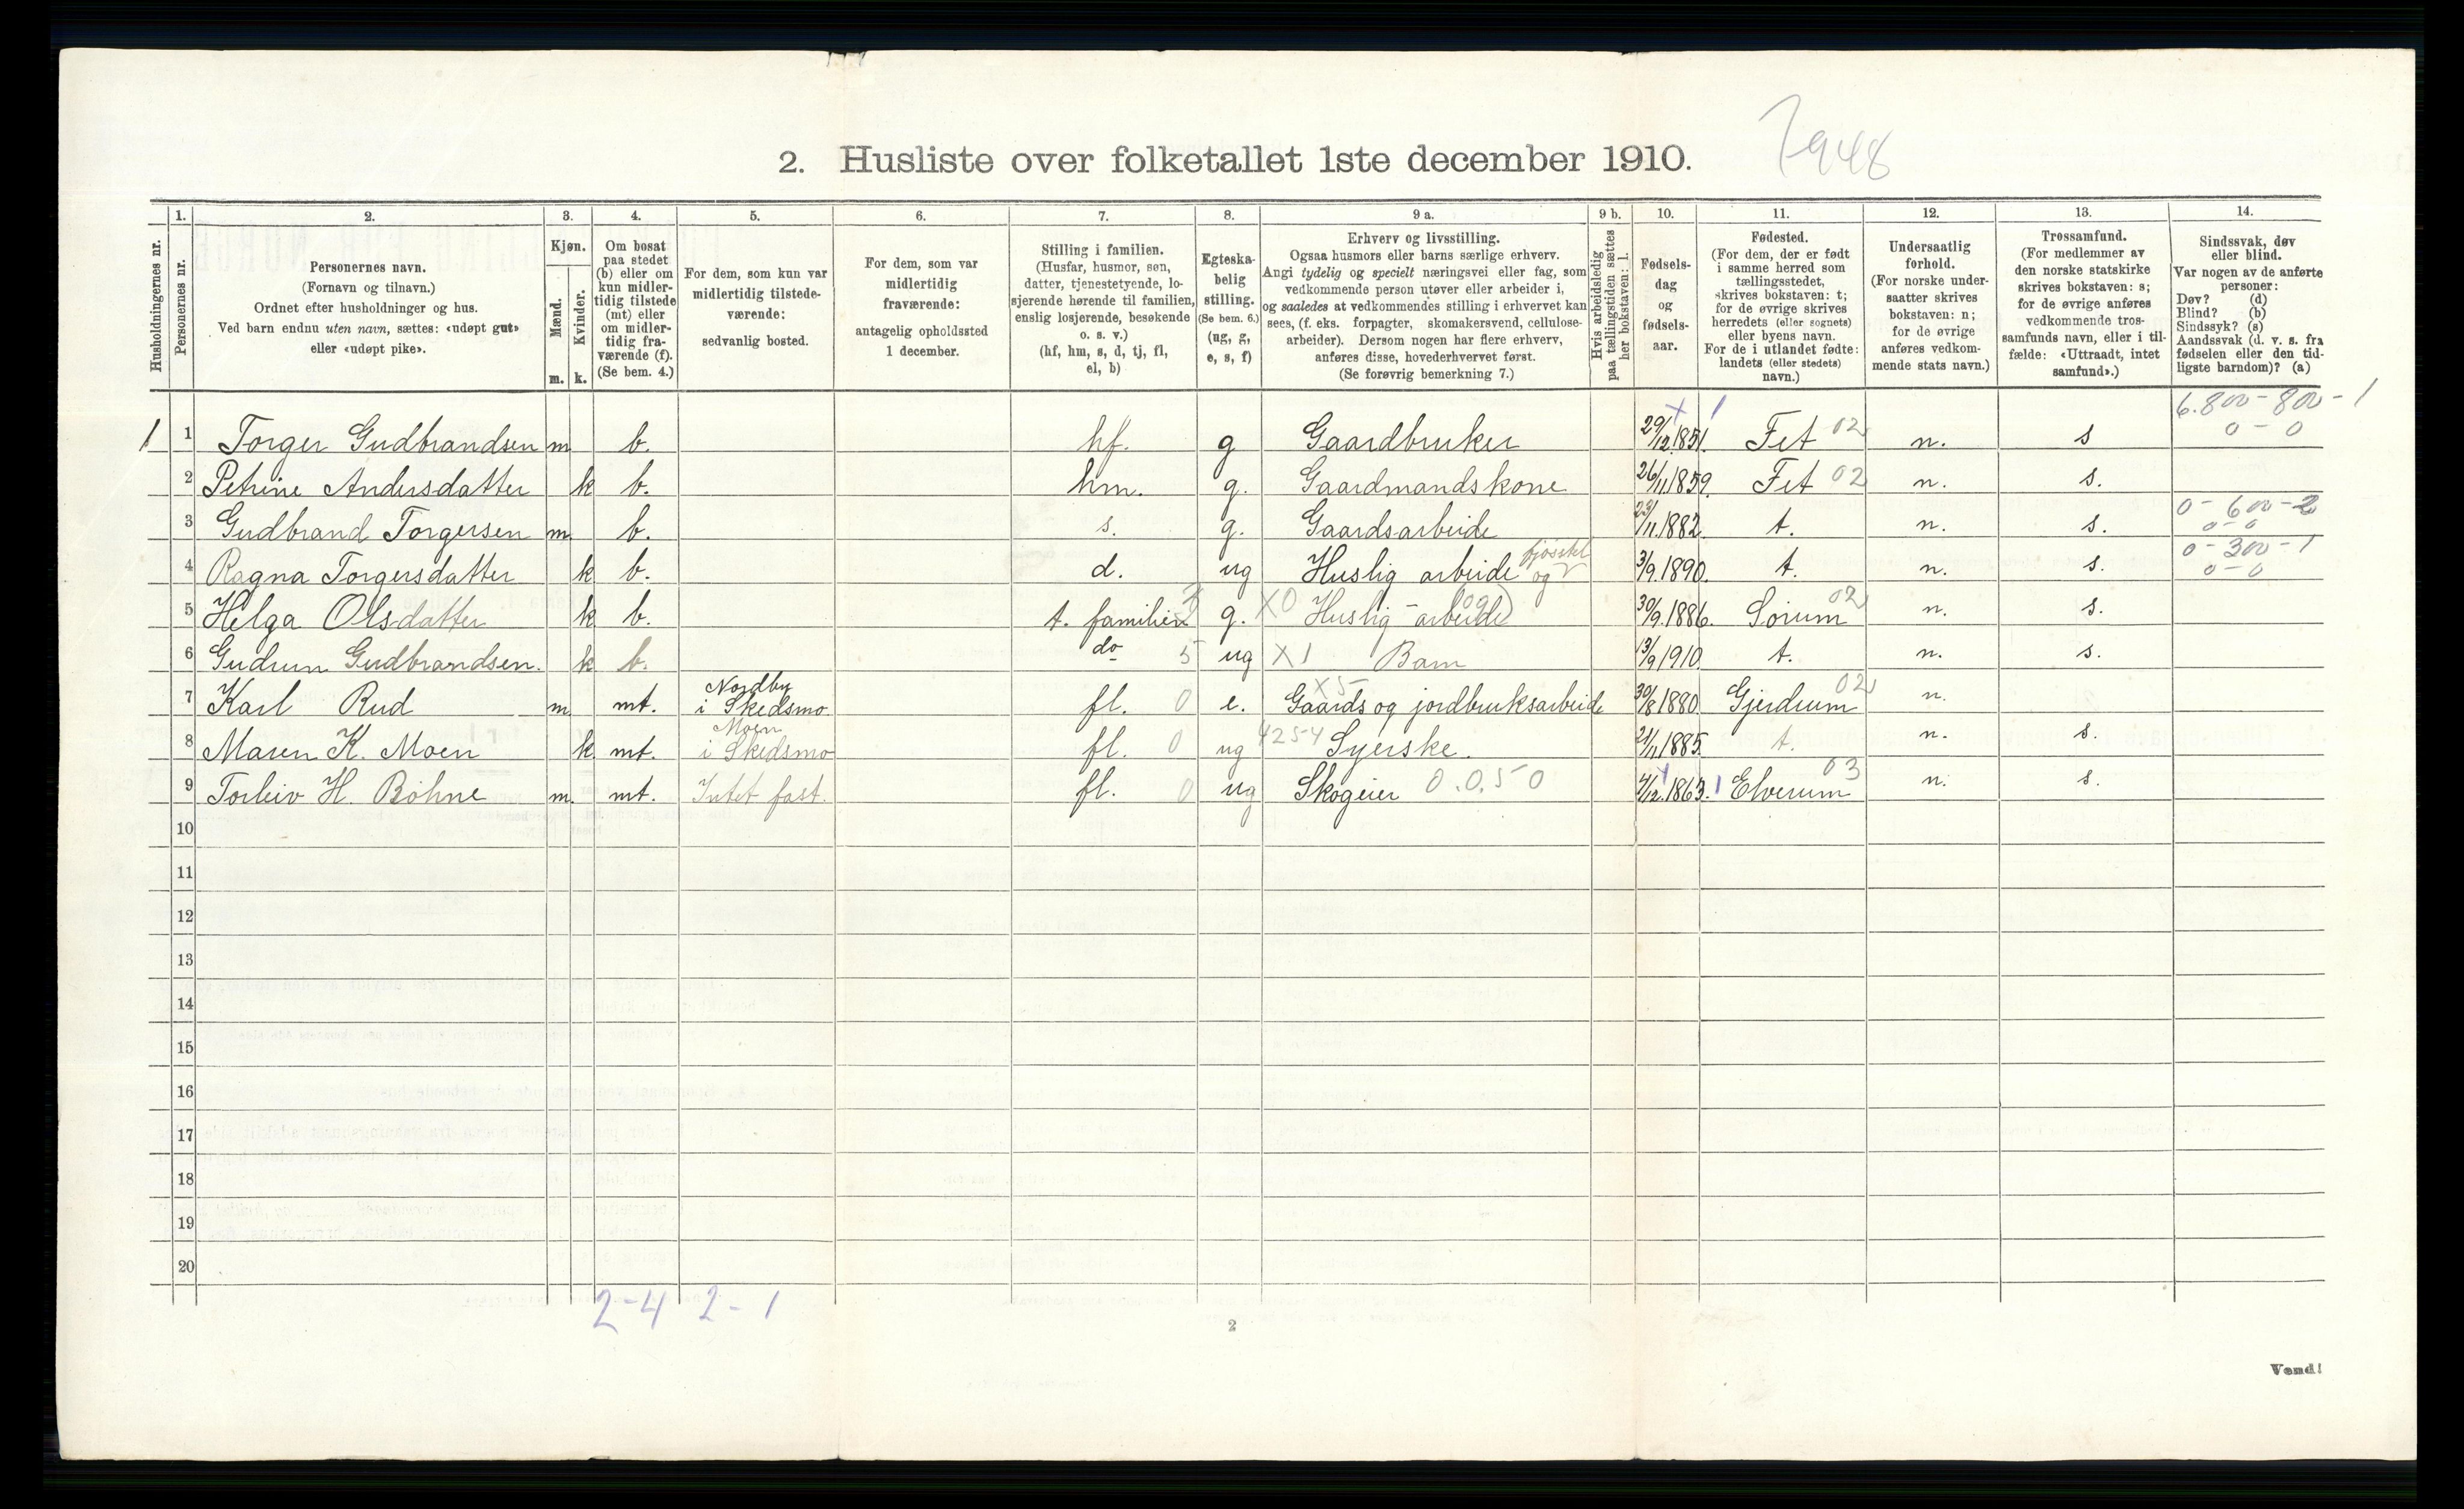 7948
2. Husliste over folketallet 1ste december 1910.
Husholdningernes nr.
1.
Personernes nr.
2.
Personernes navn.
(Fornavn og tilnavn.)
Ordnet efter husholdninger og hus.
Ved barn endnu uten navn, sættes: «udøpt gut»
eller «udøpt pike».
3.
Kjøn.
Mænd.
Kvinder.
m. k.
4.
Om bosat
paa stedet
(b) eller om
kun midler-
tidig tilstede
(mt) eller
om midler-
tidig fra-
værende (f).
(Se bem. 4.)
5.
For dem, som kun var
midlertidig tilstede-
værende:
sedvanlig bosted.
6.
For dem, som var
midlertidig
fraværende:
antagelig opholdssted
1 december.
7.
Stilling i familien.
(Husfar, husmor, søn,
datter, tjenestetyende, lo-
sjerende hørende til familien,
enslig losjerende, besøkende
o. s. v.)
(hf, hm, s, d, tj, fl,
el, b)
8.
Egteska-
belig
stilling.
(Se bem. 6.)
(ug, g,
e, s, f)
9 a.
Erhverv og livsstilling.
Ogsaa husmors eller barns særlige erhverv.
Angi tydelig og specielt næringsvei eller fag, som
vedkommende person utøver eller arbeider i,
og saaledes at vedkommendes stilling i erhvervet kan
sees, (f. eks. forpagter, skomakersvend, cellulose-
arbeider). Dersom nogen har flere erhverv,
anføres disse, hovederhvervet først.
(Se forøvrig bemerkning 7.)
9 b.
Hvis arbeidsledig
paa tællingstiden sættes
her bokstaven: l.
10.
Fødsels-
dag
og
fødsels-
aar.
11.
Fødested.
(For dem, der er født
i samme herred som
tællingsstedet,
skrives bokstaven: t;
for de øvrige skrives
herredets (eller sognets)
eller byens navn.
For de i utlandet fødte:
landets (eller stedets)
navn.)
12.
Undersaatlig
forhold.
(For norske under-
saatter skrives
bokstaven: n;
for de øvrige
anføres vedkom-
mende stats navn.)
13.
Trossamfund.
(For medlemmer av
den norske statskirke
skrives bokstaven: s;
for de øvrige anføres
vedkommende tros-
samfunds navn, eller i til-
fælde: «Uttraadt, intet
samfund».)
14.
Sindssvak, døv
eller blind.
Var nogen av de anførte
personer:
Døv? (d)
Blind? (b)
Sindssyk? (s)
Aandssvak (d. v. s. fra
fødselen eller den tid-
ligste barndom)? (a)
6.800-800-1
1 1 Torger Gudbrandsen m b. hf. g Gaardbruker 29/12.1851. Fet 02 n. s 0-0
2 Petrine Andersdatter k b. hm. g. Gaardmandskone 26/11.1859. Fet 02 n. s.
3 Gudbrand Torgersen m b. s. g. Gaardsarbeide 23/11.1882. t. n. s. 0-600-2 0-0
4 Ragna Torgersdatter k b. d. ug Huslig arbeide og 3/9.1890. t. n. s. 0-300-1 0-0
5 Helga Olsdatter k b. t. familien g. X0 Huslig-arbeide 30/9.1886. Sørum 02 n. s.
6 Gudrun Gudbrandsen. k b. do 5 ug X1 Barn 13/9 1910. t. n. s.
7 Karl Rud m mt. Nordby i Skedsmo fl. 0 e. X5 Gaards og jordbruksarbeide 30/8 1880 Gjerdrum 02 n.
8 Maren K. Moen k mt. Moen i Skedsmo fl. 0 ug 4254 Syerske. 21/11.1885. t. n. s.
9 Torleiv H. Böhne m. mt. Intet fast. fl. 0 ug Skogeier 0.0.50 4/12.1863. 1 Elverum 03 n. s.
10
11
12
13
14
15
16
17
18
19
20
2-4 2-1
2
Vend!